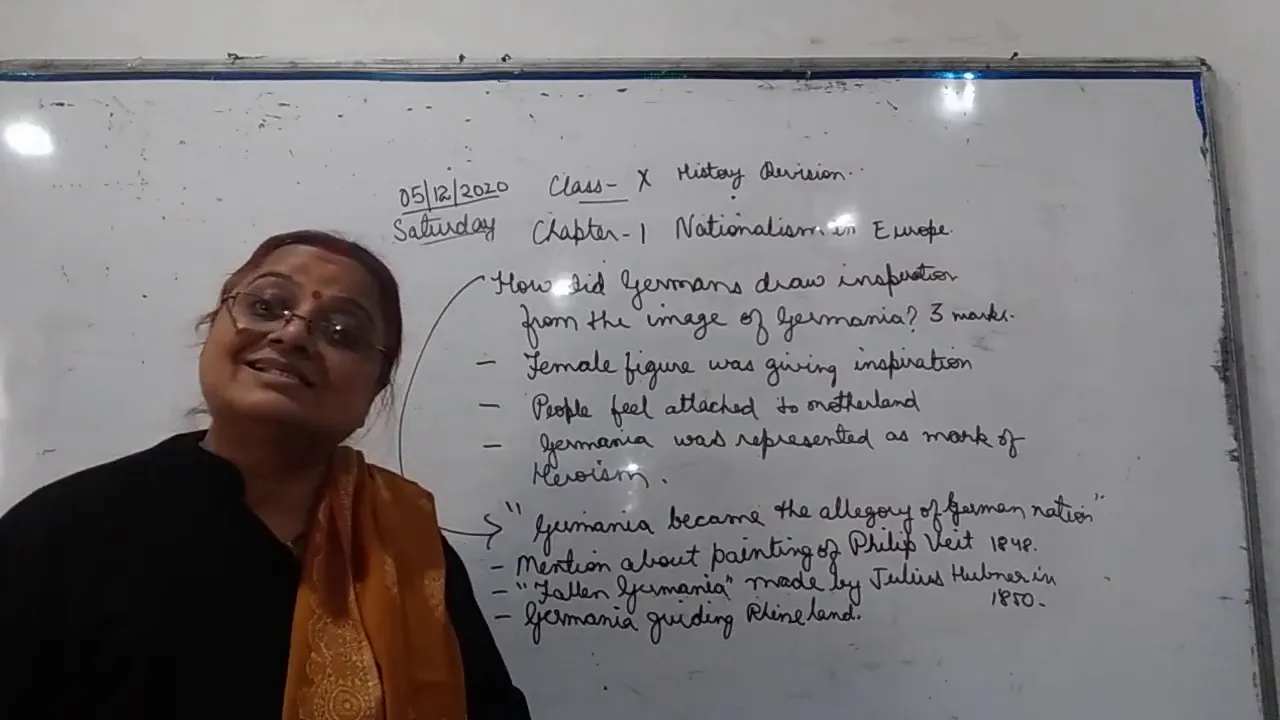 05/12/2020 Class- X History Revision..
Saturday Chapter-1 Nationalism in Europe.
How did Germans draw inspiration
from the image of Germania? 3 marks.
- Female figure was giving inspiration
- People feel attached to motherland
- Germania was represented as mark of
Heroism.
"Germania became the allegory of German nation"
- Mention about painting of Philip Veit 1848.
- "Fallen Germania" made by Julius Hubner in
1850.
- Germania guiding Rhineland.